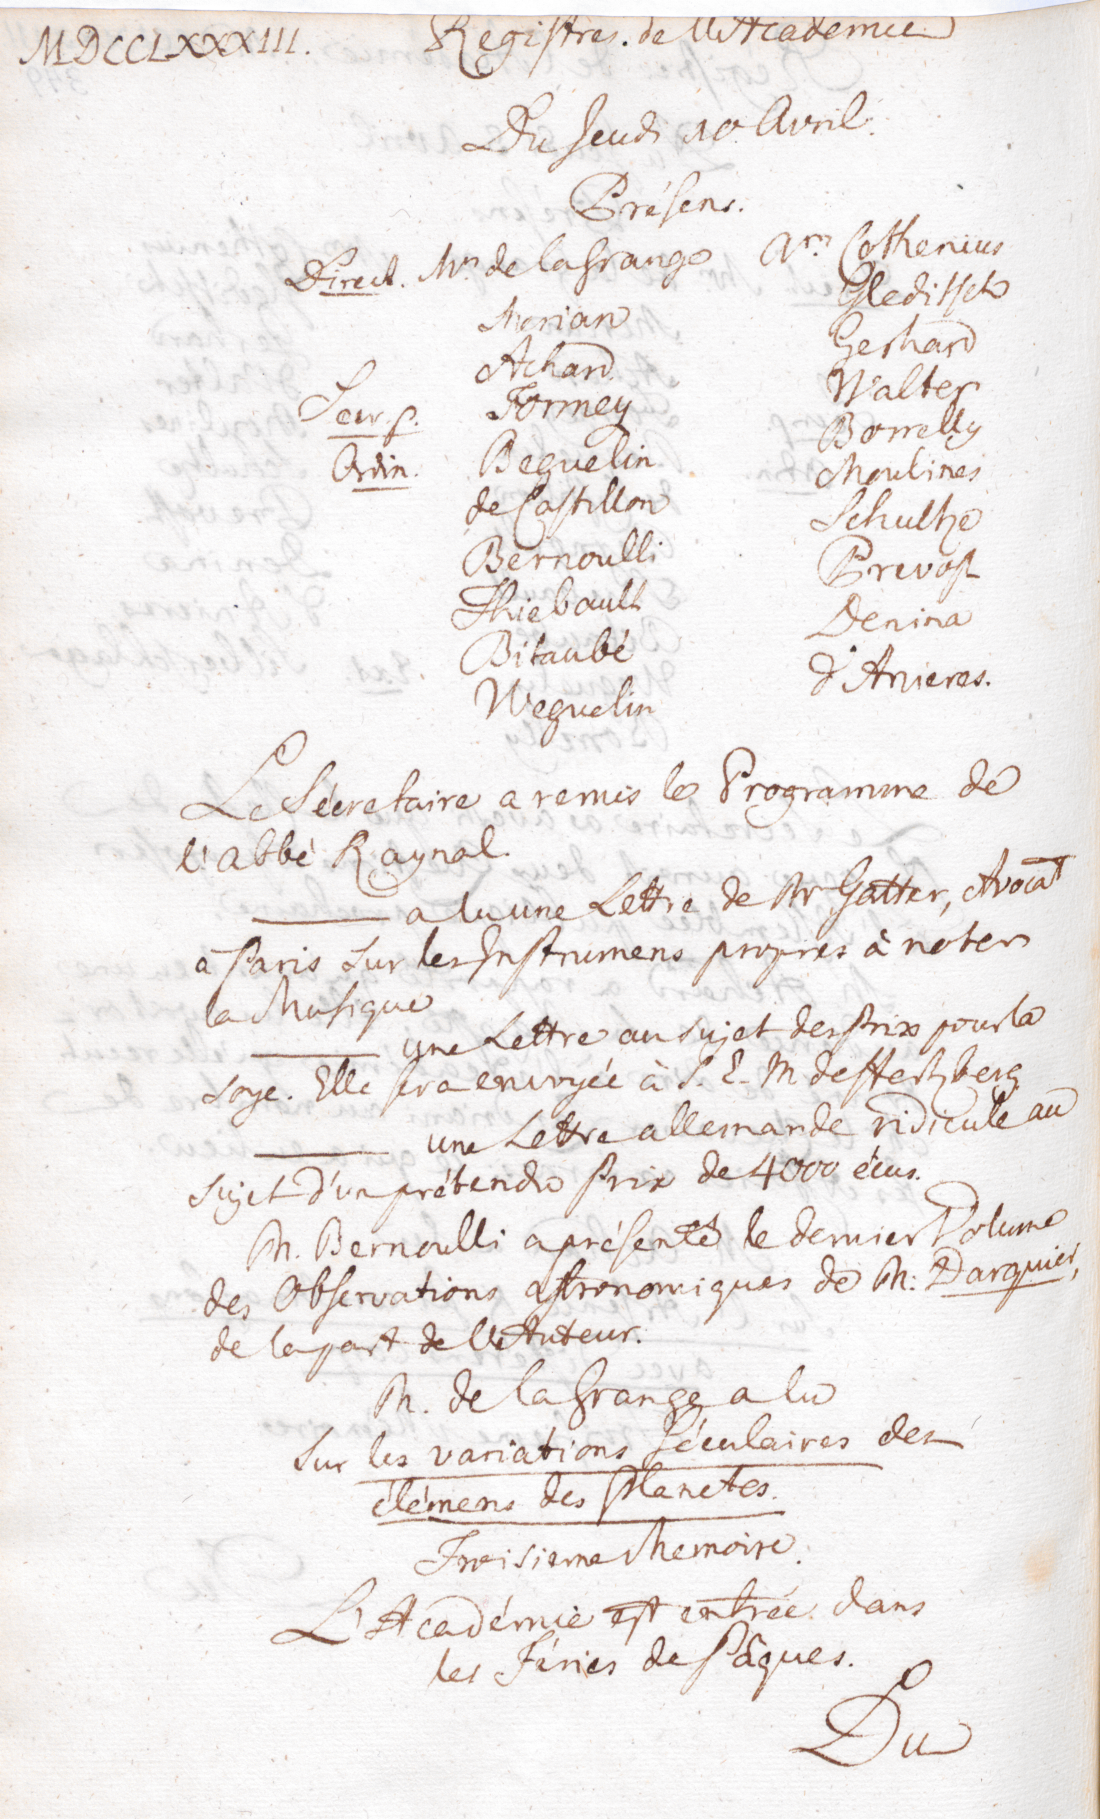 MDCCLXXXIII. Registres de l'Academie
Du Jeudi 10 Avril.
Présens.
Direct. Mrs de la Grange
Merian
Achard
Secr. p. Formey
Ordin. Beguelin
de Castillon
Bernoulli
Thiebault
Bitaubé
Weguelin
Mrs Cothenius
Gleditsch
Gerhard
Walter
Borrelly
Moulines
Schultze
Prevost
Denina
d'Anieres.
Le Sécretaire a remis le Programme de
l'abbé Raynal.
——— a lu une Lettre de Mr Gatter, Avocat
à Paris sur les Instrumens propres à noter
la Musique
——— une Lettre au sujet des Prix pour la
soye. Elle sera envoyée à S. E. M de Hertzberg
——— une Lettre allemande ridicule au
sujet d'un prétendu Prix de 4000 écus.
M. Bernoulli a présenté le dernier Volume
des Observations astronomiques de M: Darquier,
de la part de l'Auteur.
M. de la Grange a lu
Sur les variations séculaires des
élémens des Planetes.
Troisieme Memoire.
L'Académie est entrée dans
les Féries de Pâques.
Du